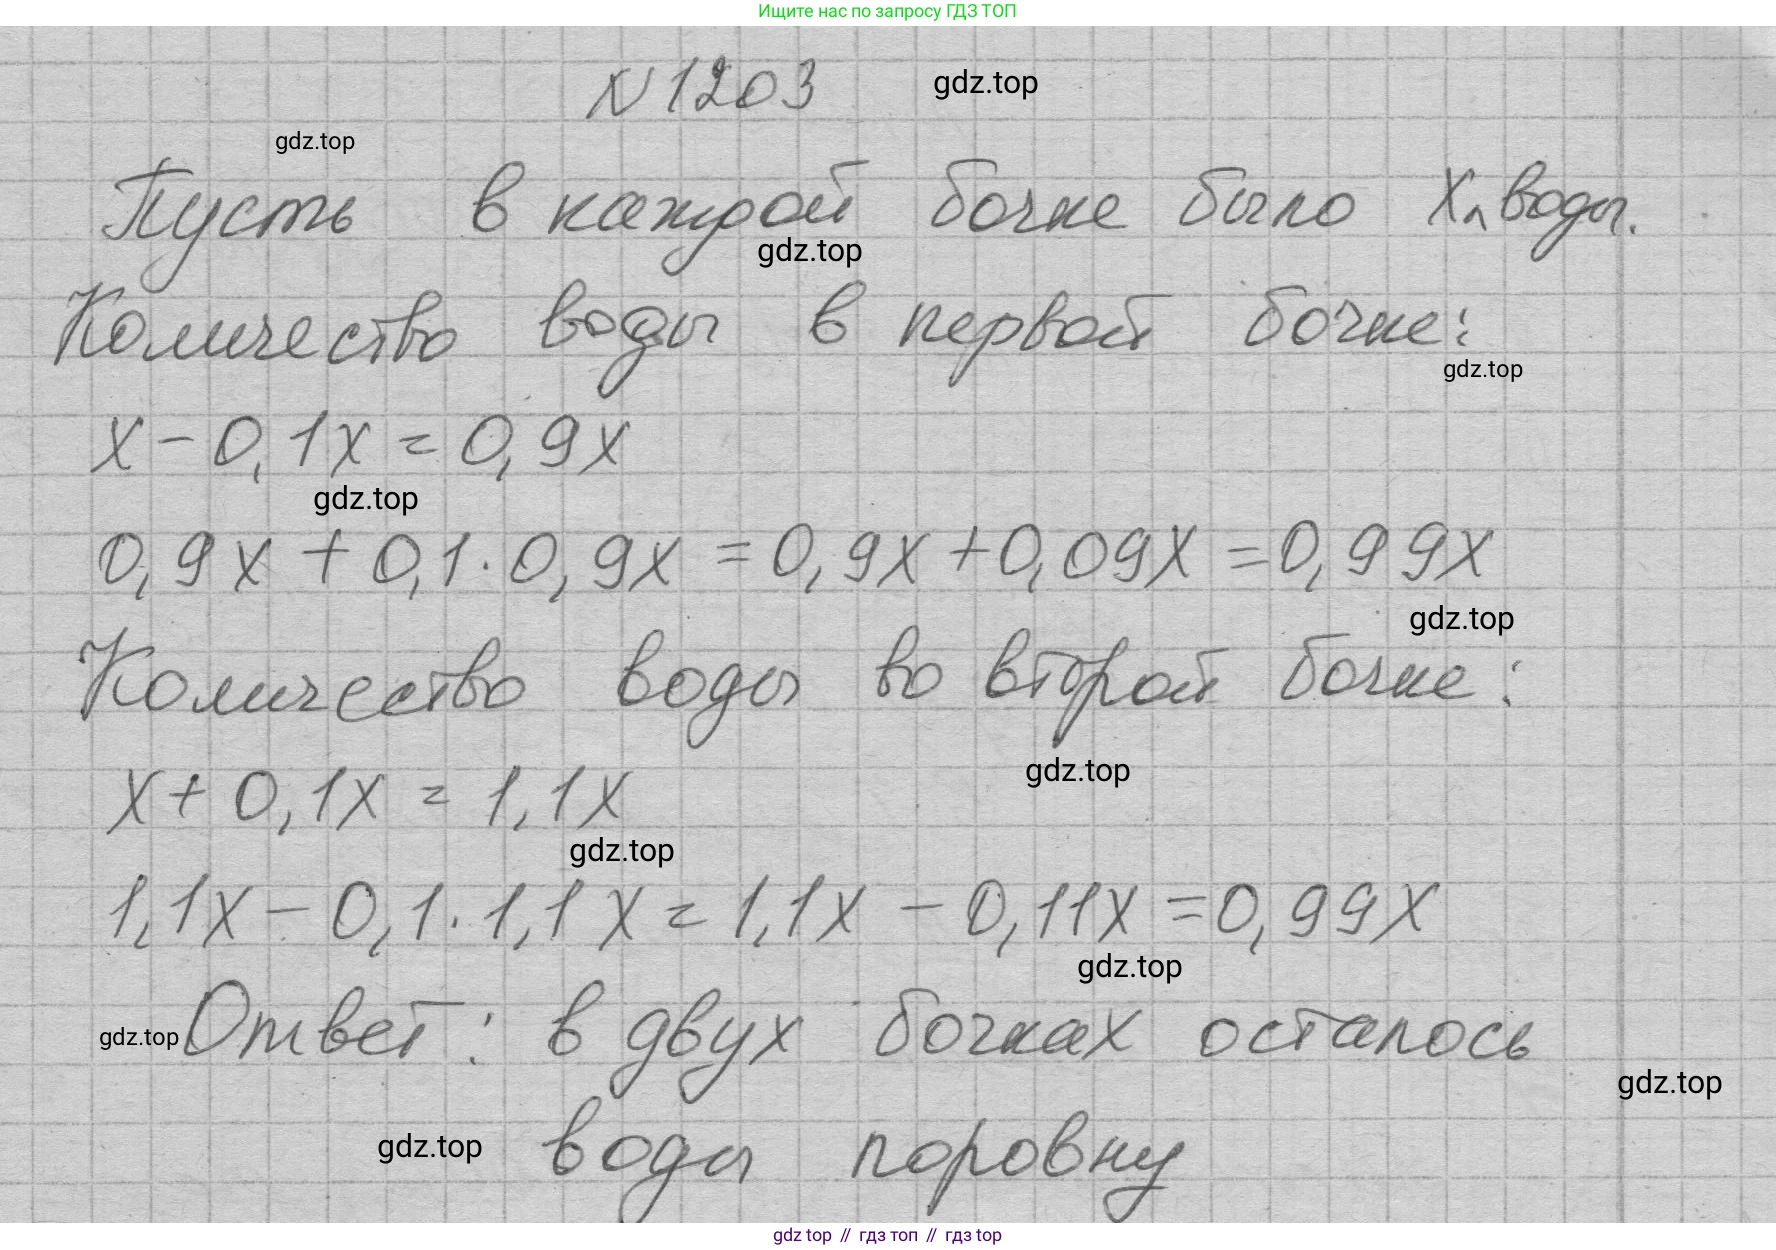 Ищите нас по запросу ГДЗ ТОП
N 1203 gdz.top
gdz.top
Пусть в каждой бочке было х л воды.
gdz.top
Количество воды в первой бочке:
gdz.top
х - 0,1х = 0,9х
gdz.top
0,9х + 0,1 · 0,9х = 0,9х + 0,09х = 0,99х
gdz.top
Количество воды во второй бочке:
gdz.top
х + 0,1х = 1,1х
gdz.top
1,1х - 0,1 · 1,1х = 1,1х - 0,11х = 0,99х
gdz.top
gdz.top Ответ: в двух бочках осталось
gdz.top
gdz.top воды поровну
gdz top // гдз топ // гдз top